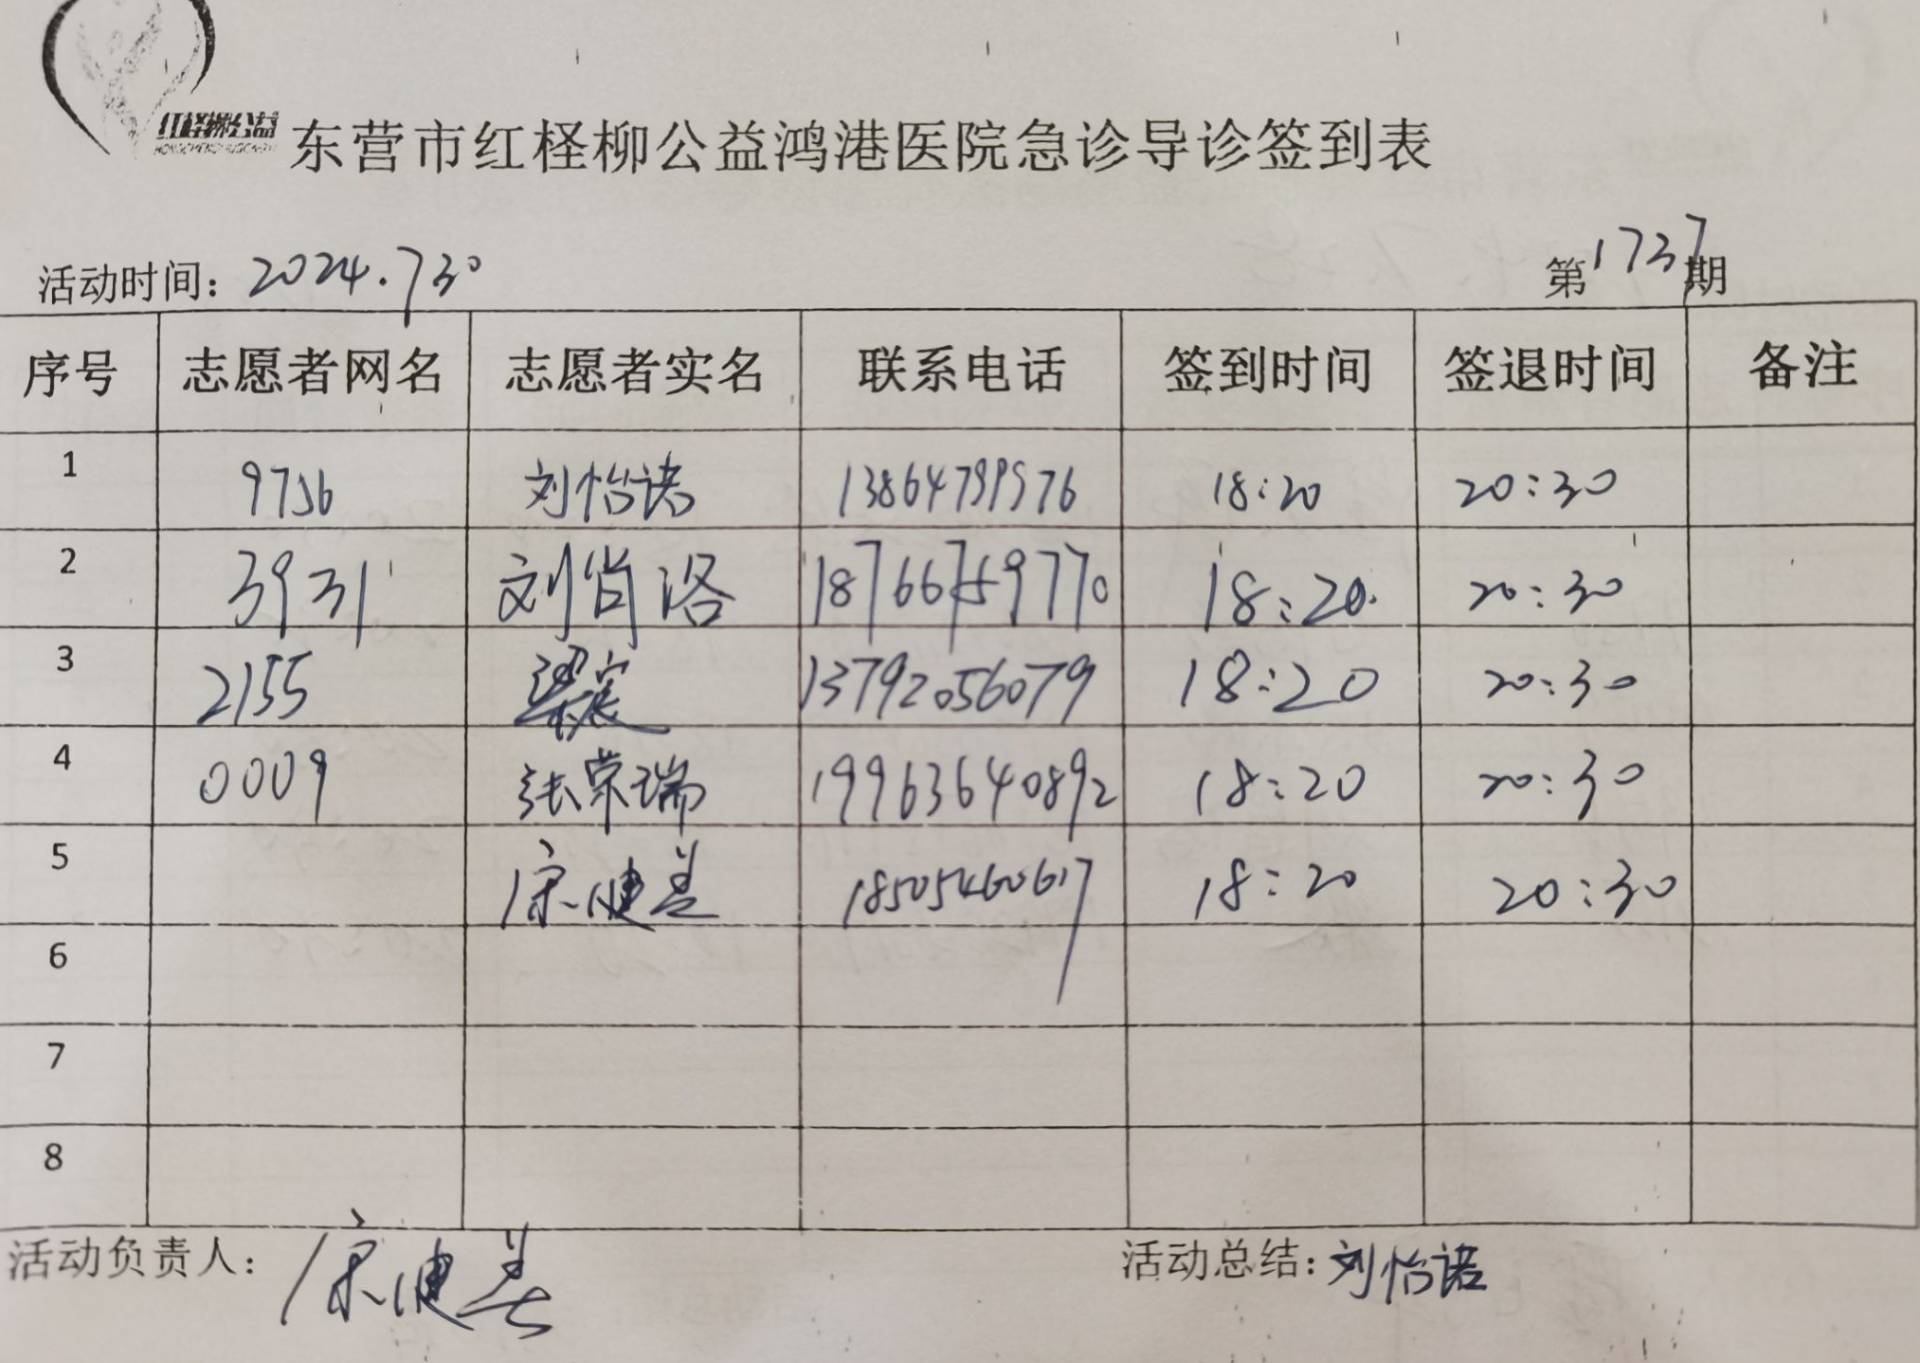 红柽柳公益
东营市红柽柳公益鸿港医院急诊导诊签到表
活动时间：2024.730
第1737期
序号 志愿者网名 志愿者实名 联系电话 签到时间 签退时间 备注
1 9756 刘怡诺 13864799576 18:20 20:30
2 3931 刘肖洛 18766759770 18:20. 20:30
3 2155 梁宸 13792056079 18:20 20:30
4 0009 张荣瑞 19963640892 18:20 20:30
5 宋健美 18505460617 18:20 20:30
6
7
8
活动负责人：宋健美
活动总结：刘怡诺